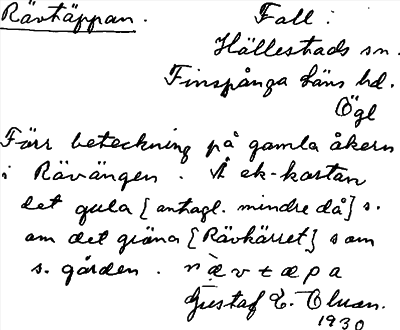 Rävtäppan. Fall:
Hällestads sn.
Finspånga läns hd.
Ögl
Förr beteckning på gamla åkern
i Rävängen. Å ek-kartan
det gula [antagl. mindre då] s.
om det gröna [Rävkärret] s om
s. gården. rævtæpa
Gustaf E. Olsson.
1930